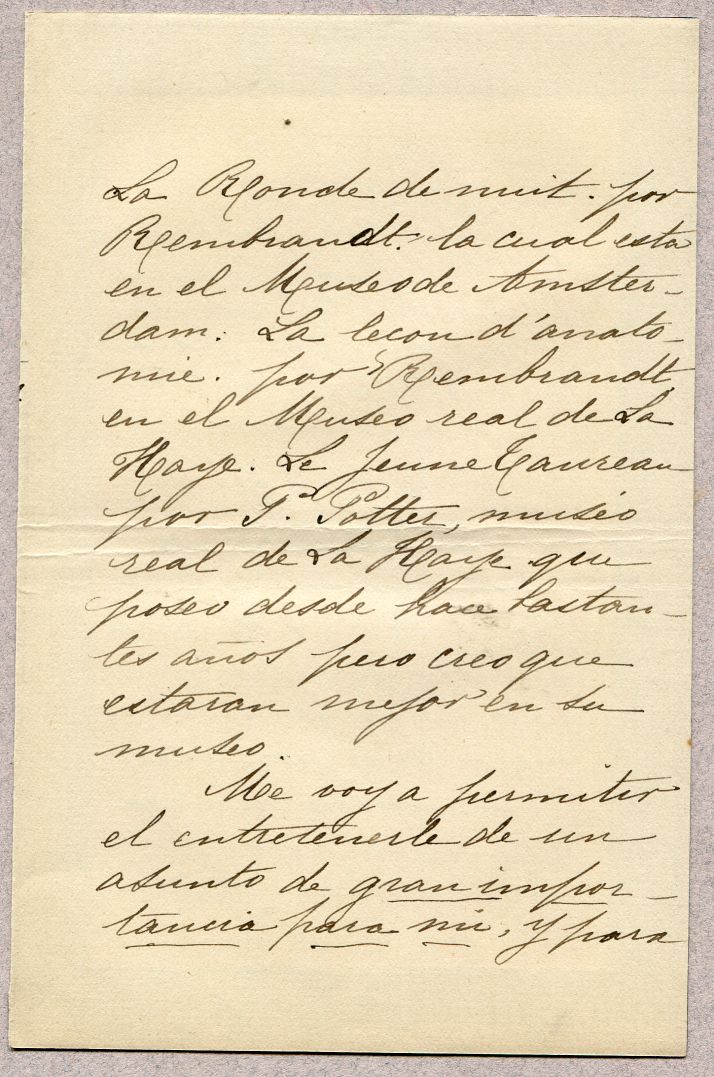 La Ronde de nuit. por
Rembrandt. la cual esta
en el Museo de Amster-
dam. La lecon d'anato-
mie. por Rembrandt,
en el Museo real de La
Haye. Le Jeune Taureau
por P. Potter, museo
real de La Haye que
poseo desde hace bastan-
tes años pero creo que
estaran mejor en su
museo.
Me voy a permitir
el entretenerle de un
asunto de gran impor-
tancia para mi, y para